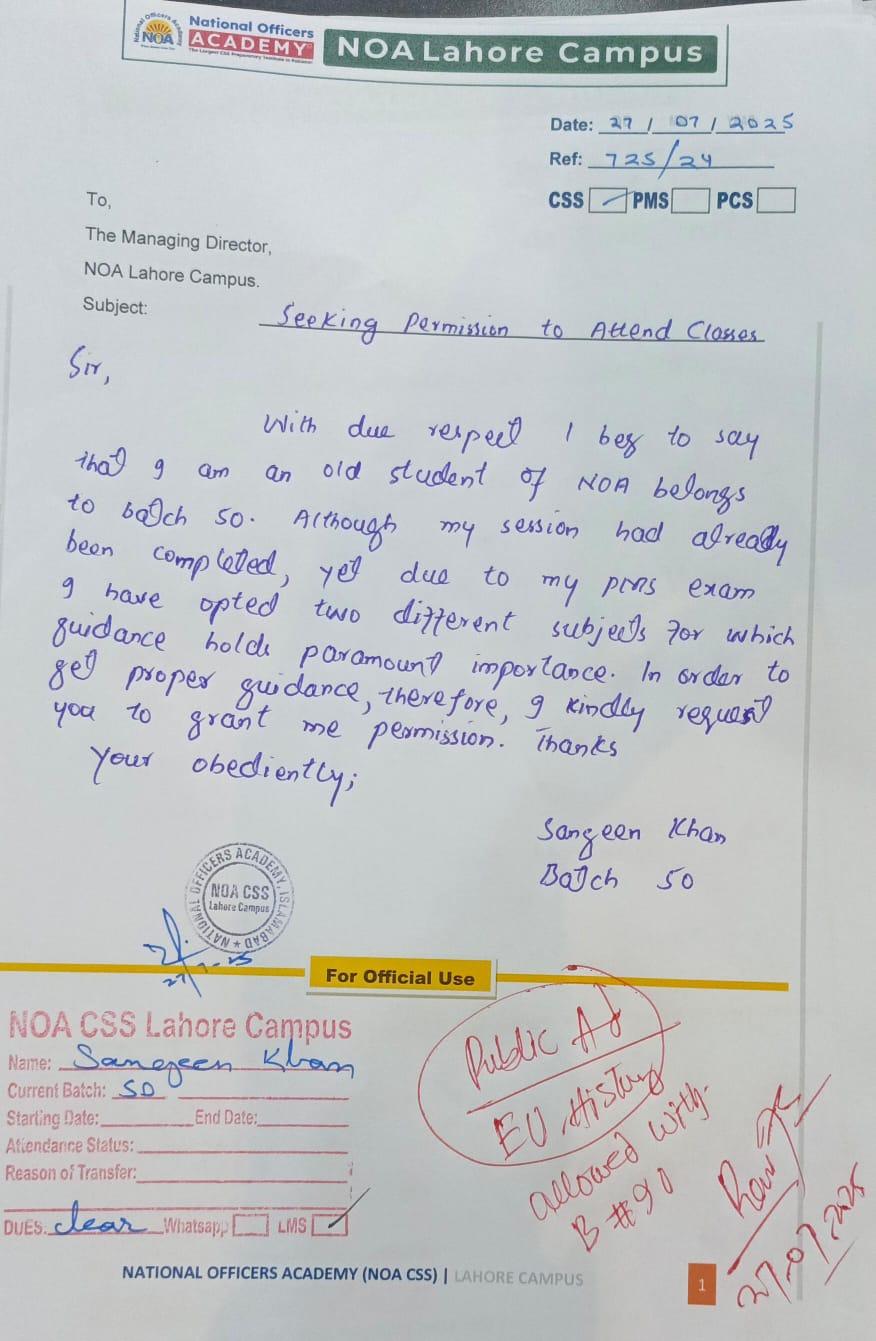 National Officers
ACADEMY
NOA
The Largest CSS Preparatory Institute in Pakistan
NOA Lahore Campus
Date: 27 / 07 / 2025
Ref: 725/24
CSS PMS PCS
To,
The Managing Director,
NOA Lahore Campus.
Subject: Seeking Permission to Attend Classes
Sir,
With due respect I beg to say
that I am an old student of NOA belongs
to batch 50. Although my session had already
been completed, yet due to my pms exam
I have opted two different subjects for which
guidance holds paramount importance. In order to
get proper guidance, therefore, I kindly request
you to grant me permission. Thanks
Your obediently;
Sangeen Khan
Batch 50
NATIONAL OFFICERS ACADEMY, ISLAMABAD
NOA CSS
Lahore Campus
27/7-25
For Official Use
NOA CSS Lahore Campus
Name: Sangeen Khan
Current Batch: 50
Starting Date: End Date:
Attendance Status:
Reason of Transfer:
DUES: clear Whatsapp LMS
Public Ad
EU History
allowed with
B #90
27.07.2025
NATIONAL OFFICERS ACADEMY (NOA CSS) | LAHORE CAMPUS
1